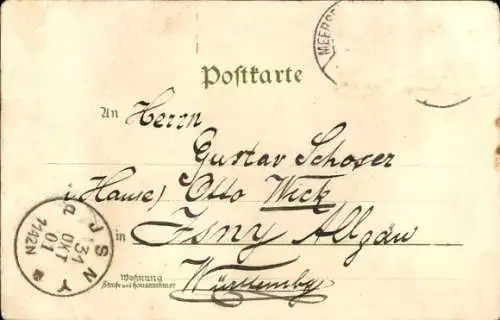 MEERSB
Postkarte
An Herrn
Gustav Schoser
i/Hause) Otto Wick
in Isny Allgäu
Württembg
Wohnung
(Straße und Hausnummer)
ISNY
a
31
OKT
01